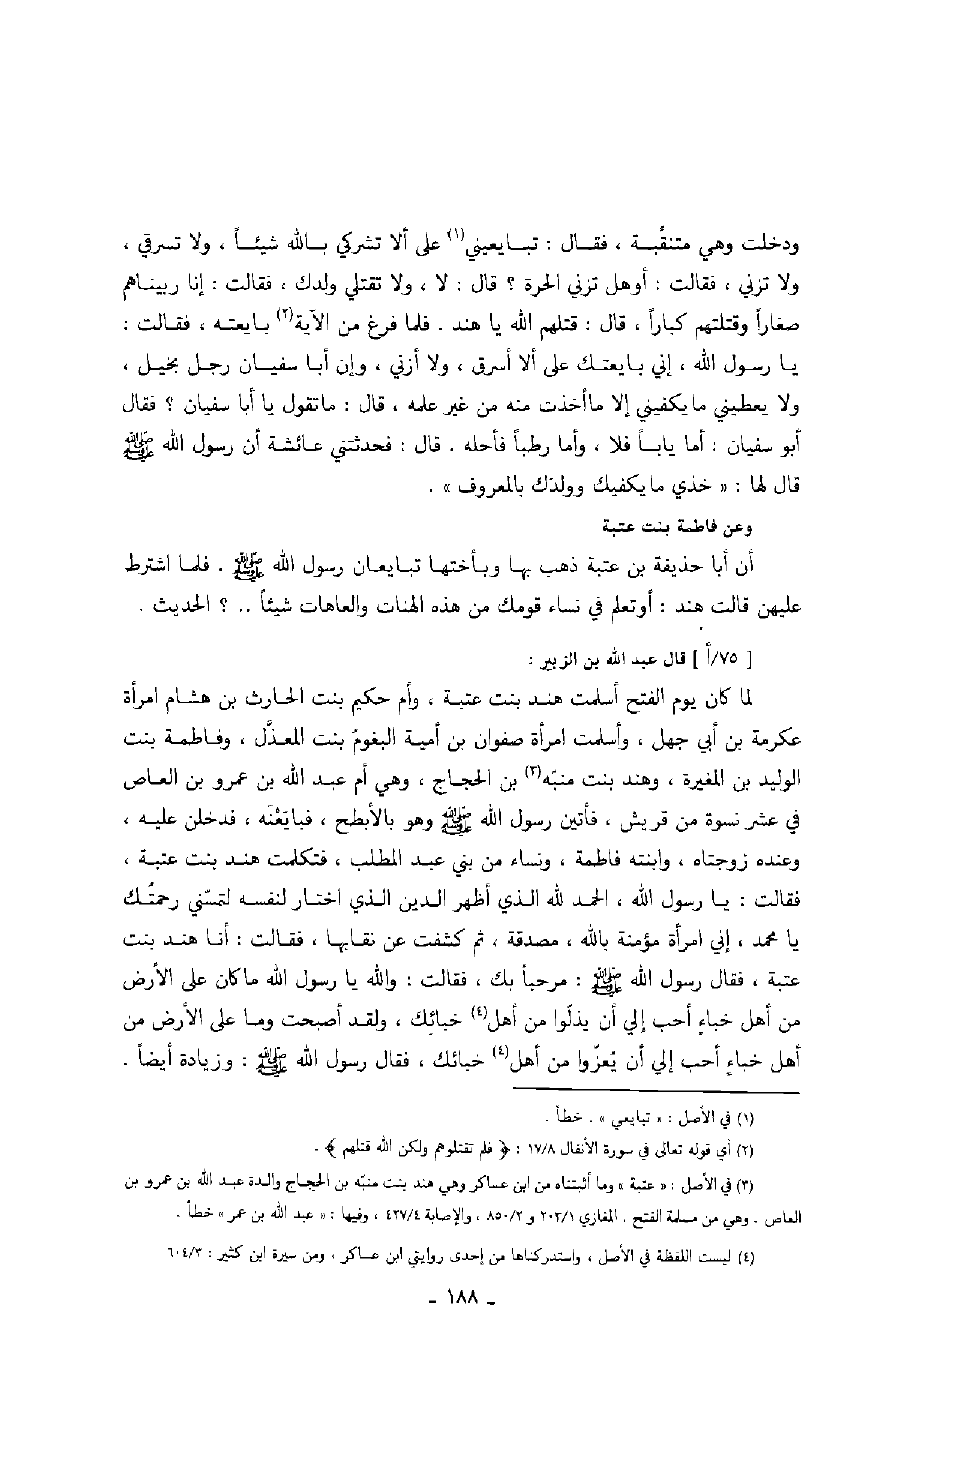 ودخلت وهي متنقّبة ، فقال : تبايعيني(١) على ألا تشركي بالله شيئاً ، ولا تسرقي ،
ولا تزني ، فقالت : أوهل تزني الحرة ؟ قال : لا ، ولا تقتلي ولدك ، فقالت : إنا ربيناهم
صغاراً وقتلتهم كباراً ، قال : قتلهم الله يا هند . فلما فرغ من الآية(٢) بايعته ، فقالت :
يا رسول الله ، إني بايعتك على ألا أسرق ، ولا أزني ، وإن أبا سفيان رجل بخيل ،
ولا يعطيني ما يكفيني إلا ما أخذت منه من غير علمه ، قال : ماتقول يا أبا سفيان ؟ فقال
أبو سفيان : أما يابساً فلا ، وأما رطباً فأحله . قال : فحدثتني عائشة أن رسول الله ﷺ
قال لها : « خذي ما يكفيك وولدَك بالمعروف » .
وعن فاطمة بنت عتبة
أن أبا حذيفة بن عتبة ذهب بها وبأختها تبايعان رسول الله ﷺ . فلما اشترط
عليهن قالت هند : أوتعلم في نساء قومك من هذه الهنات والعاهات شيئاً .. ؟ الحديث .
[ ٧٥/أ ] قال عبد الله بن الزبير :
لما كان يوم الفتح أسلمت هند بنت عتبة ، وأم حكيم بنت الحارث بن هشام امرأة
عكرمة بن أبي جهل ، وأسلمت امرأة صفوان بن أمية البغومُ بنت المعذَّل ، وفاطمة بنت
الوليد بن المغيرة ، وهند بنت منبّه(٣) بن الحجاج ، وهي أم عبد الله بن عمرو بن العاص
في عشر نسوة من قريش ، فأتين رسول الله ﷺ وهو بالأبطح ، فبايَعْنَه ، فدخلن عليه ،
وعنده زوجتاه ، وابنته فاطمة ، ونساء من بني عبد المطلب ، فتكلمت هند بنت عتبة ،
فقالت : يا رسول الله ، الحمد لله الذي أظهر الدين الذي اختار لنفسه لتمسّني رحمتُك
يا محمد ، إني امرأة مؤمنة بالله ، مصدقة ، ثم كشفت عن نقابها ، فقالت : أنا هند بنت
عتبة ، فقال رسول الله ﷺ : مرحباً بك ، فقالت : والله يا رسول الله ماكان على الأرض
من أهل خباءٍ أحب إلي أن يذلّوا من أهل(٤) خبائك ، ولقد أصبحت وما على الأرض من
أهل خباءٍ أحب إلي أن يُعزّوا من أهل(٤) خبائك ، فقال رسول الله ﷺ : وزيادة أيضاً .
(١) في الأصل : « تبايعي » . خطأ .
(٢) أي قوله تعالى في سورة الأنفال ١٧/٨ : ﴿ فلم تقتلوهم ولكن الله قتلهم ﴾ .
(٣) في الأصل : « عتبة » وما أثبتناه من ابن عساكر وهي هند بنت منبّه بن الحجاج والدة عبد الله بن عمرو بن
العاص . وهي من مسلمة الفتح . المغازي ٢٠٣/١ و ٨٥٠/٢ ، والإصابة ٤٢٧/٤ ، وفيها : « عبد الله بن عمر » خطأ .
(٤) ليست اللفظة في الأصل ، واستدركناها من إحدى روايتي ابن عساكر ، ومن سيرة ابن كثير : ٦٠٤/٣
- ١٨٨ -